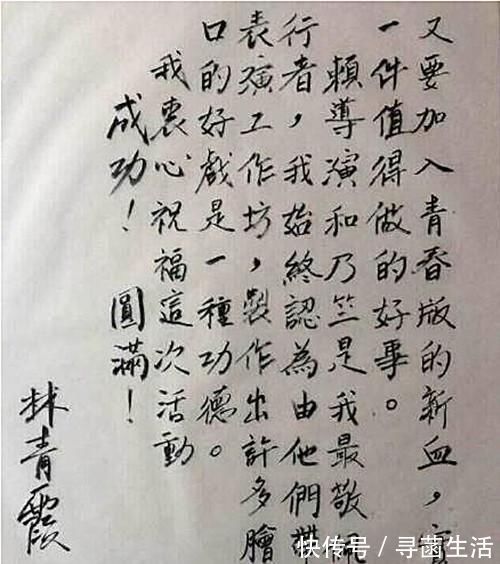 又要加入青春版的新血，實
一件值得做的好事。
賴導演和乃竺是我最敬佩
行者，我始終認為由他們帶
表演工作坊，製作出許多膾
口的好戲是一種功德。
我衷心祝福這次活動
成功！圓滿！
林青霞
快传号 / 寻菌生活